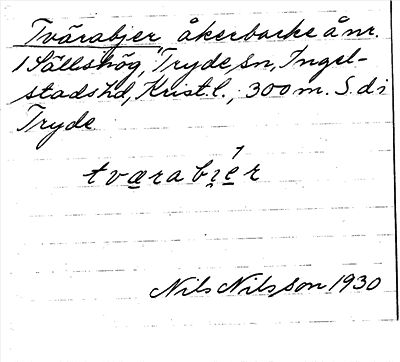 Tvärabjer åkerbacke å nr.
1 Sällshög, Tryde sn, Ingel-
stads hd, Krist. l., 300 m. S. d. i
Tryde
tværabi̯ér
Nils Nilsson 1930